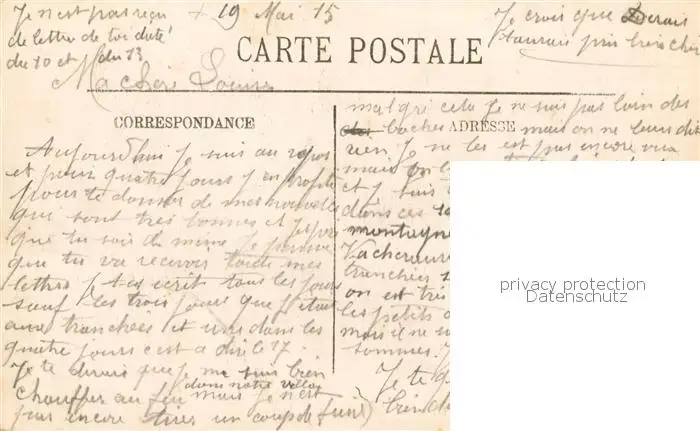 Je n'est pas reçu + 19 Mai 15
de lettre de toi daté
du 10 et du 13
Je crois que
CARTE POSTALE
Ma cher Louise
CORRESPONDANCE
Aujourd'hui je suis au repos
et pour quatre jours j'en profite
pour te donner de mes nouvelles
que sont tres bonnes et j'espoir
que tu sois de même Je pense
que tu va recevoir toute mes
lettres Je t'es ecrit tous les jours
sauf les trois jours que j'etait
aux tranchées et un dans les
quatre jours c'est a dire le 17
Je te dirais que je me suis bien
chauffer au feu dans notre
mais je n'est
pas encore tirer un coup de fusil
malgré cela je ne suis pas loin des
boches ADRESSE mais on ne leurs dit
rien Je ne les est pas encore vus
mais on
et j suis
dans ces
montagne
tranchées
on est très
les petits
mais il ne
sommes.
Je te
bien
privacy protection
Datenschutz